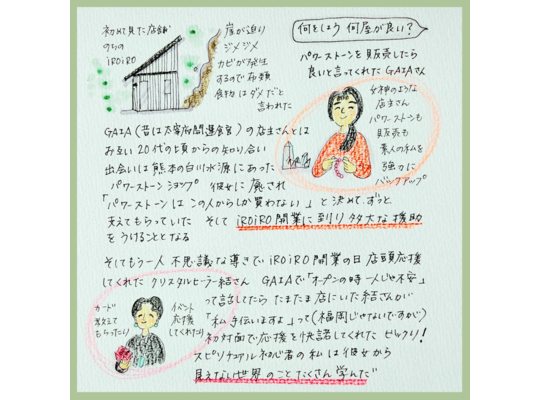 初めて見た店舗
のちの
iROiRO
崖が迫り
ジメジメ
カビが発生
するので布類
食物はダメだと
言われた
何をしよう 何屋が良い？
パワーストーンを販売したら
良いと言ってくれたGAIAさん
女神のような
店主さん
パワーストーンも
販売も
素人の私を
強力に
バックアップ
GAIA(昔は太宰府開運舎宮)の店主さんとは
お互い20代の頃からの知り合い
出会いは熊本の白川水源にあった
パワーストーンショップ 彼女に癒され
「パワーストーンはこの人からしか買わない」と決めて、ずっと
支えてもらっていた そして iROiRO開業に到り多大な援助
をうけることとなる
そしてもう一人 不思議な導きで iROiRO開業の日 店頭応援
してくれた クリスタルヒーラー結さん GAIAで「オープンの時一人じゃ不安」
って話してたら たまたま店にいた結さんが
「私手伝いますよ」って(福岡じゃないですか)
初対面で応援を快諾してくれた ビックリ！
スピリチュアル初心者の私は彼女から
見えない世界のことたくさん学んだ
カード
教えて
もらったり
イベント
応援
してくれたり